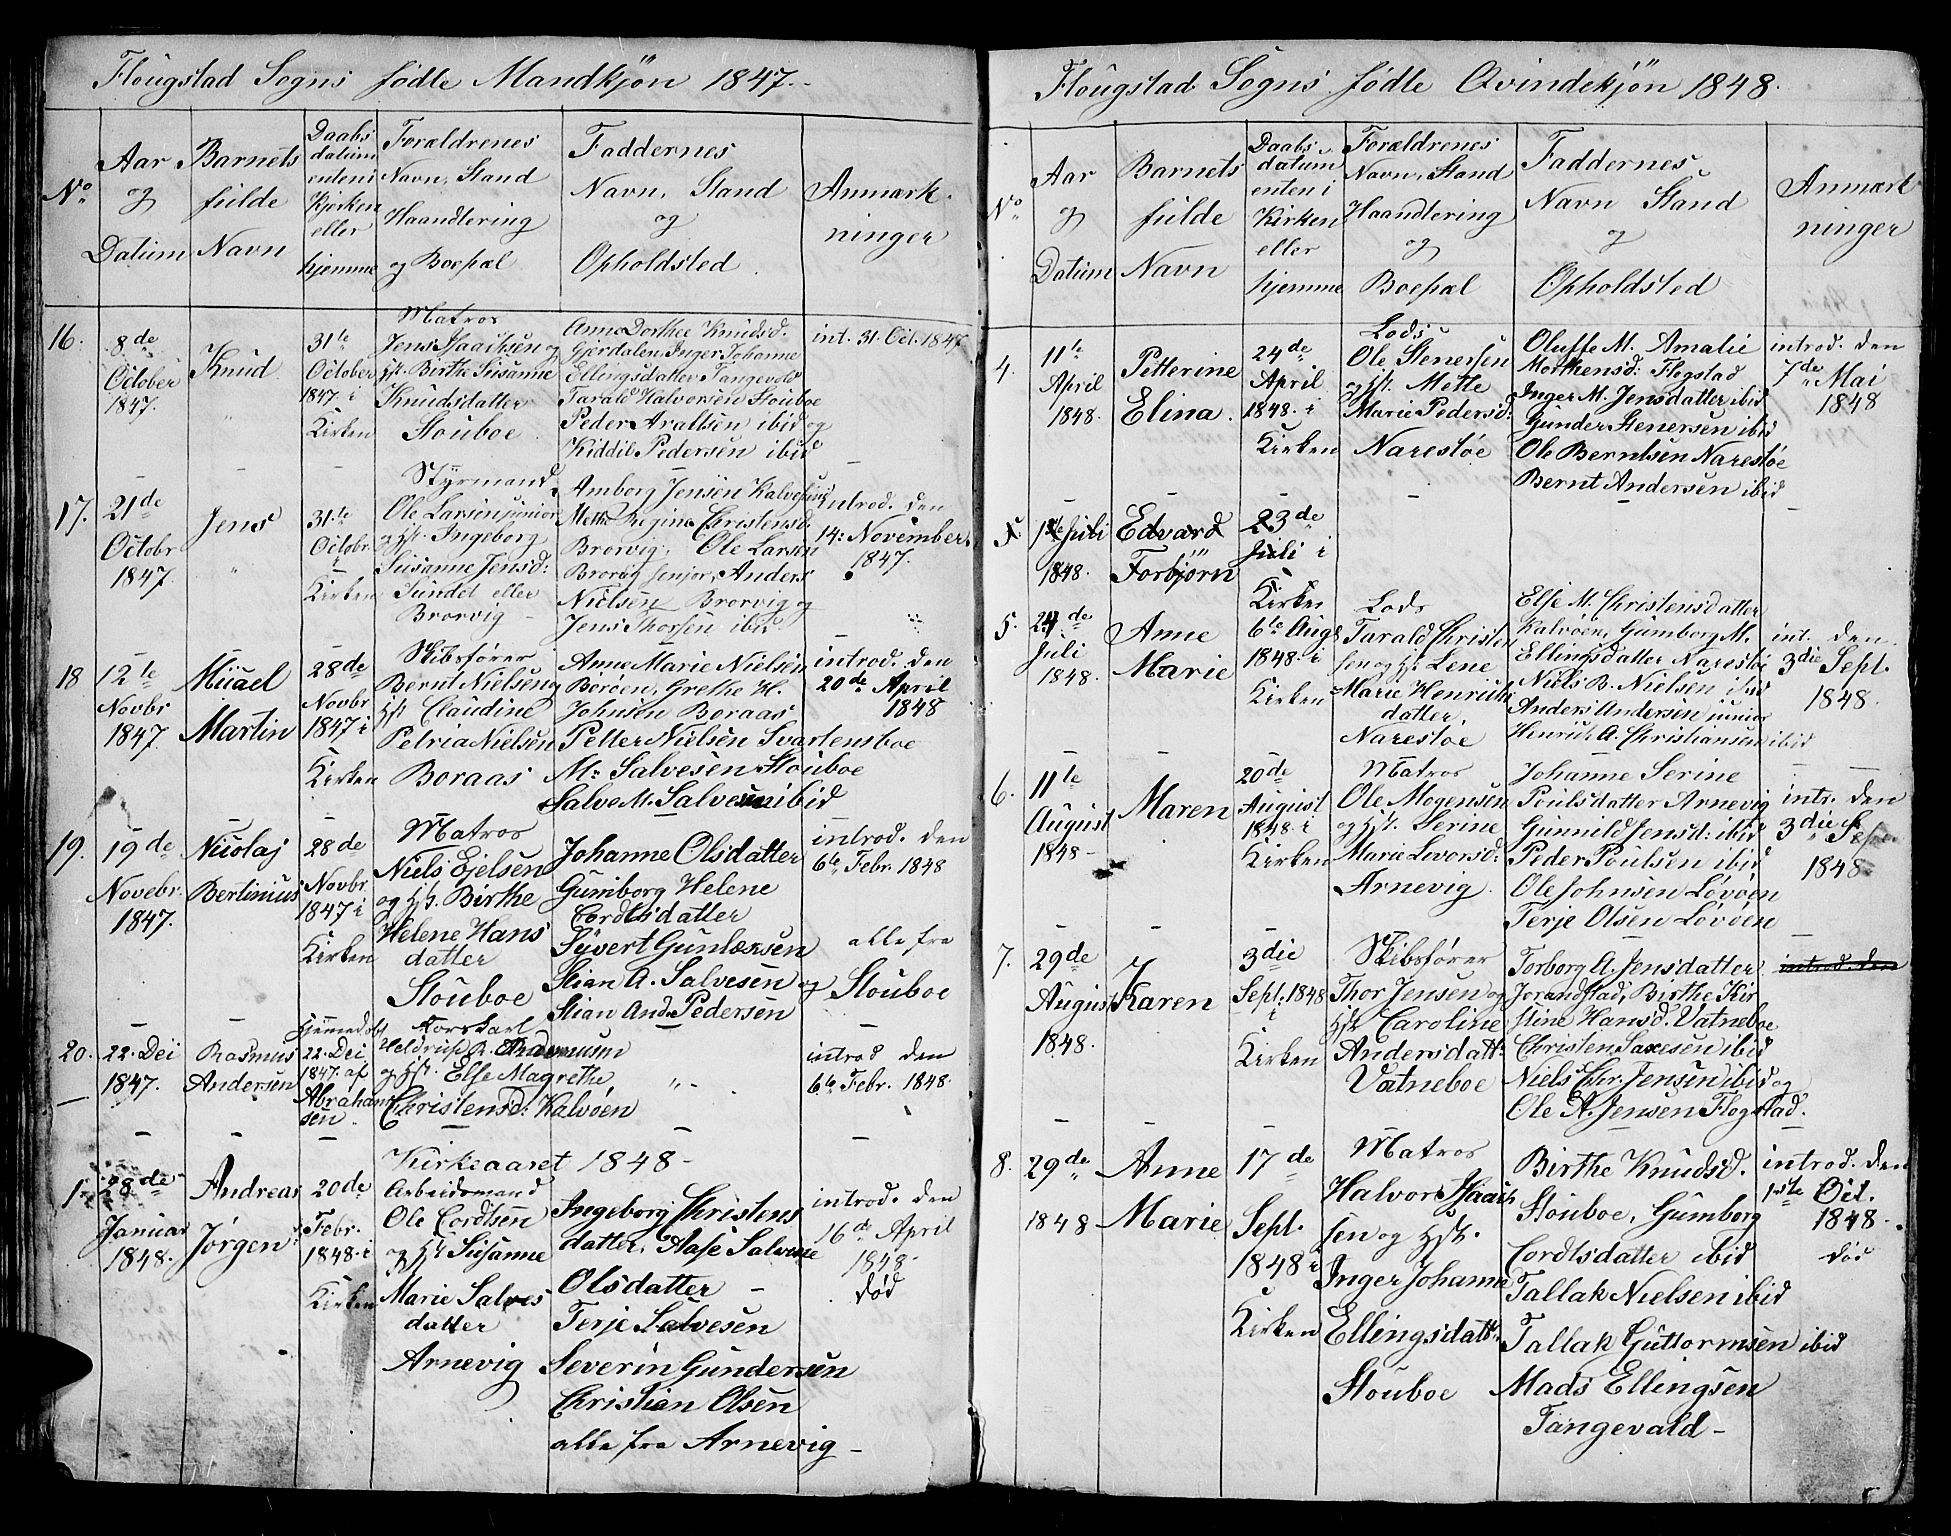 Floügstad Sogns fødte Mandkjøn 1847.
No
Aar
og
Datüm
Barnets
fülde
Navn
Daabs
datüm
enten i
Kjerken
eller
hjemme
Forældrenes
Navn, Stand
Haandtering
og Boepæl
Faddernes
Navn, Stand
og
Opholdsted
Anmærk-
ninger
16.
8de
October
1847.
Knüd
31te
October
1847 i
Kirken
Matros
Jens Isaachsen og
Hst. Birthe Süsanne
Knüdsdatter
Stoüboe
Anne Dorthee Knüdsd.
Gjerdalen, Inger Johanne
Ellingsdatter Tangevald
Tarald Halvorsen Stoüboe
Peder Araltsen ibid og
Kiddil Pedersen ibid
int. 31. Oct. 1847
17.
21de
Octobr
1847.
Jens
31te
Octobr
i
Kirken
Styrmand
Ole Larsen jünior
og Hst. Ingeborg
Süsanne Jensd:
Sündet eller
Brorvig
Amborg Jensen Kalvesünd
Methe Regine Christensd.
Brorvig, Ole Larsen
Brorvig senjor, Anders
Nielsen Brorvig og
Jens Thorsen ibid
introd. den
14: November
1847.
18
12te
Novbr
1847.
Micael
Martin
28de
Novbr
1847 i
Kirken
Skibsfører
Bernt Nielsen og
Hst. Claudine
Petria Nielsen
Boraas
Anne Marie Nielsen
Børøen, Grethe H.
Johnsen Boraas
Petter Nielsen Svartensboe
M: Salvesen Stoüboe
Salve M. Salvesen ibid
introd. den
20de April
1848
19.
19de
Novebr.
1847.
Nicolaj
Bertinius
28de
Novbr
1847 i
Kirken
Matros
Niels Ejelsen
og Hst. Birthe
Helene Hans
datter
Stoüboe
Johanne Olsdatter
Gümborg Helene
Cordtsdatter
Syvert Günlexsen
Stian A. Salvesen og
Stian And. Pedersen
introd. den
6te Febr. 1848
alle fra
Stoüboe
20.
22. Dec
1847.
Rasmus
Andersen
Hjemmedøbt
22. Dec
1847. af
Abraham
sen
Korskarl
R. Rasmusen
og Hst. Else Magrethe
Christensd: Kalvøen
introd den
6te Febr. 1848.
Kirkeaaret 1848
1.
28de
Januar
1848.
Andreas
Jørgen
20de
Febr.
1848 i
Kirken
Arbeidsmand
Ole Cordtsen
og Hst Süsanne
Marie Salves
datter
Arnevig
Ingeborg Christens
datter, Aase Salvesne
Olsdatter
Terje Salvesen
Severin Gündersen
Christian Olsen
alle fra Arnevig
introd. den
16de April
1848
død
Floügstad Sogns fødte Qvindekjøn 1848.
No
Aar
og
Datüm
Barnets
fülde
Navn
Daabs
datüm
enten i
Kirken
eller
hjemme
Forældrenes
Navn, Stand
Haandtering
og
Boepæl
Faddernes
Navn Stand
og
Opholdsted
Anmærk
ninger
4.
11te
April
1848.
Petterine
Elina.
24de
April
1848. i
Kirken
Lods
Ole Stenersen
og Hst. Mette
Marie Pedersd:
Narestøe
Oluffe M. Amalie
Morthensd: Flogstad
Inger M. Jensdatter ibid
Günder Stenersen ibid
Ole Berntsen Narestøe
Bernt Andersen ibid
introd. den
7de Mai
1848
5
1ste Jüli
1848.
Edvard
Torbjørn
23de
Jüli i
Kirken
5.
24de
Jüli
1848.
Anne
Marie
6te Augs
1848. i
Kirken
Lods
Tarald Christen
sen og Hst Lene
Marie Henrichs
datter.
Narestøe
Else M. Christensdatter
Kalvøen, Gümborg M.
Ellingsdatter Narestøe
Niels B. Nielsen ibid
Anders Andersen junior
Henrich A. Christiansen ibid
int. den
3die Sept.
1848.
6.
11te
August
1848
Maren
20de
August
1848. i
Kirken
Matros
Ole Mogensen
og Hst. Serine
Marie Levorsd:
Arnevig
Johanne Serine
Poülsdatter Arnevig
Günnild Jensd: ibid
Peder Poülsen ibid
Ole Johnsen Løvøen
Terje Olsen Løvøen
intr. den
3die
1848
7.
29de
Augüst
1848.
Karen
3die
Sept. 1848
i
Kirken
Skibsfører
Thor Jensen og
Hst Caroline
Andersdatt:
Vatneboe
Torborg A. Jensdatter
Jorandstad, Birthe Kir
stine Hansd. Vatneboe
Christen Saxesen ibid
Niels Chr. Jensen ibid og
Ole A. Jensen Flogstad.
introd. den
8.
29de
1848
Anne
Marie
17de
Sept.
1848 i
Kirken
Matros
Halvor Isaach
sen og Hst.
Inger Johanne
Ellingsdatt:
Stoüboe
Birthe Knüdsd.
Stoüboe, Gümborg
Cordtsdatter ibid
Tallak Nielsen ibid
Tallak Güttormsen ibid
Mads Ellingsen
Tangevald
introd. den
1ste Oct.
1848.
død